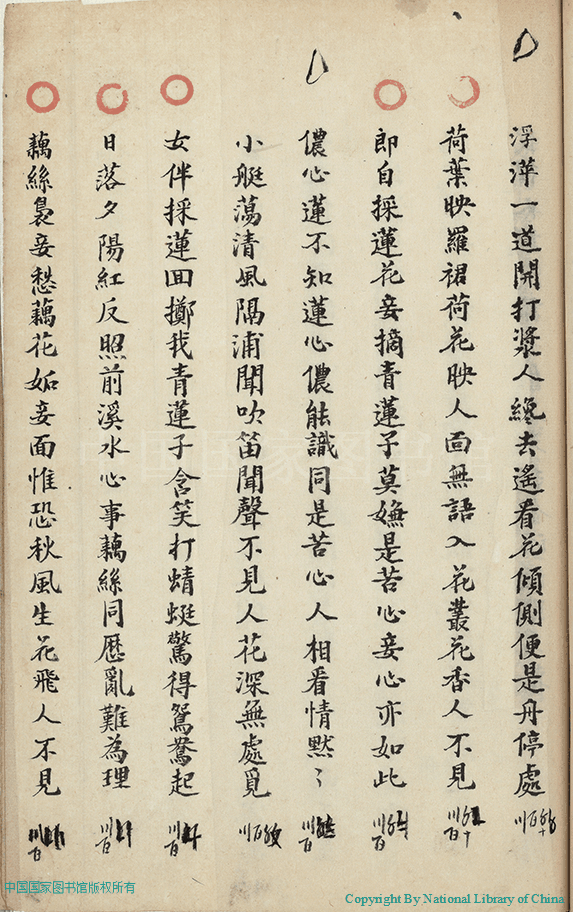 浮萍一道開打槳人纔去遙看花傾側便是舟停處
荷葉映羅裙荷花映人面無語入花叢花香人不見
郎自採蓮花妾摘青蓮子莫嫌是苦心妾心亦如此
儂心蓮不知蓮心儂能識同是苦心人相看情默〻
小艇蕩清風隔浦聞吹笛聞聲不見人花深無處覓
女伴採蓮回擲我青蓮子含笑打蜻蜓驚得鴛鴦起
日落夕陽紅反照前溪水心事藕絲同歷亂難為理
藕絲裊妾愁藕花妬妾面惟恐秋風生花飛人不見
中国国家图书馆
中国国家图书馆版权所有
Copyright By National Library of China